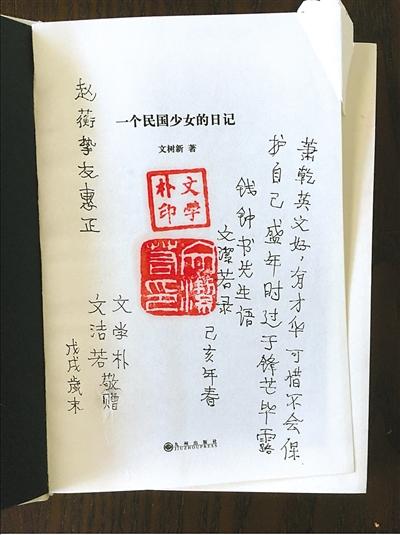 一个民国少女的日记
文树新 著
萧乾英文好，有才华可惜不会保
护自己盛年时过于锋芒毕露
钱钟书先生语
文潔若录
己亥年春
文學
朴印
文潔
若印
赵蘅挚友惠正
文学朴
文洁若 敬赠
戊戌歲末
九州出版社
JIUZHOUPRESS